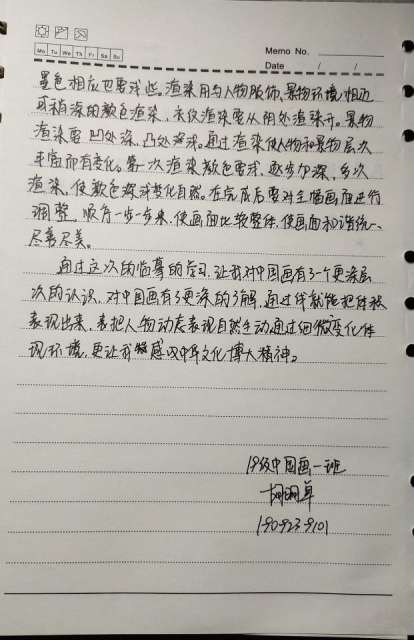 Memo No.
Mo Tu We Th Fr Sa Su
Date / /
墨色相应也要浅些。渲染用与人物服饰、景物环境相近
或稍深的颜色渲染，衣纹渲染要从阴处渲染开。景物
渲染要凹处深，凸处淡浅。通过渲染使人物和景物层次
丰富而有变化。第一次渲染颜色要浅，逐步加深，多次
渲染，使颜色深浅变化自然。在完成后要对全幅画面进行
调整，顺序一步一步来，使画面比较整体，使画面和谐统一、
尽善尽美。
通过这次的临摹的学习，让我对中国画有了一个更深层
次的认识，对中国画有了更深的了解，通过线就能把体积
表现出来，表把人物动态表现自然生动，通过细微变化体
现环境，更让我感叹中华文化博大精神。
19级中国画一班